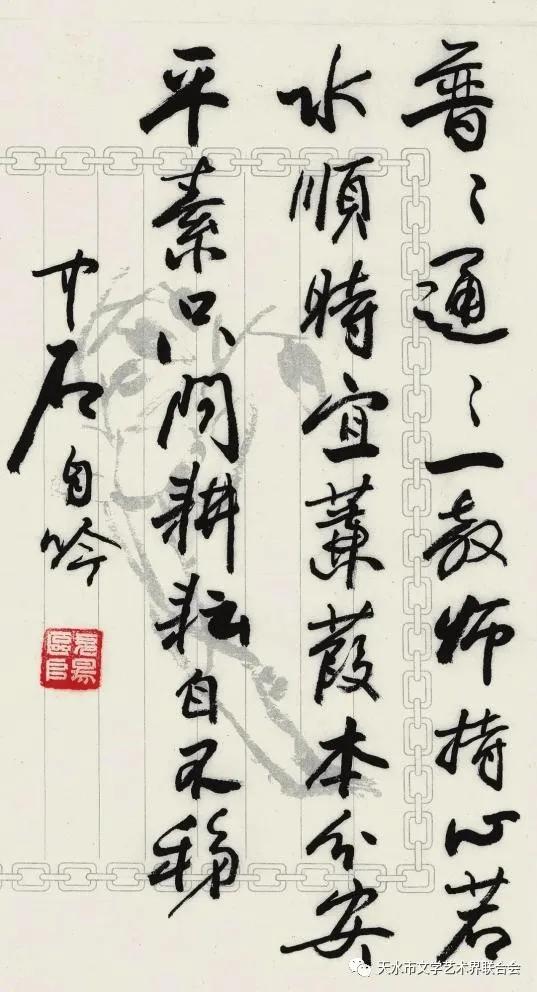 普〻通〻一教师持心若
水順時宜蒹葭本分安
平素只问耕耘自不移
中石自吟
天水市文学艺术界联合会